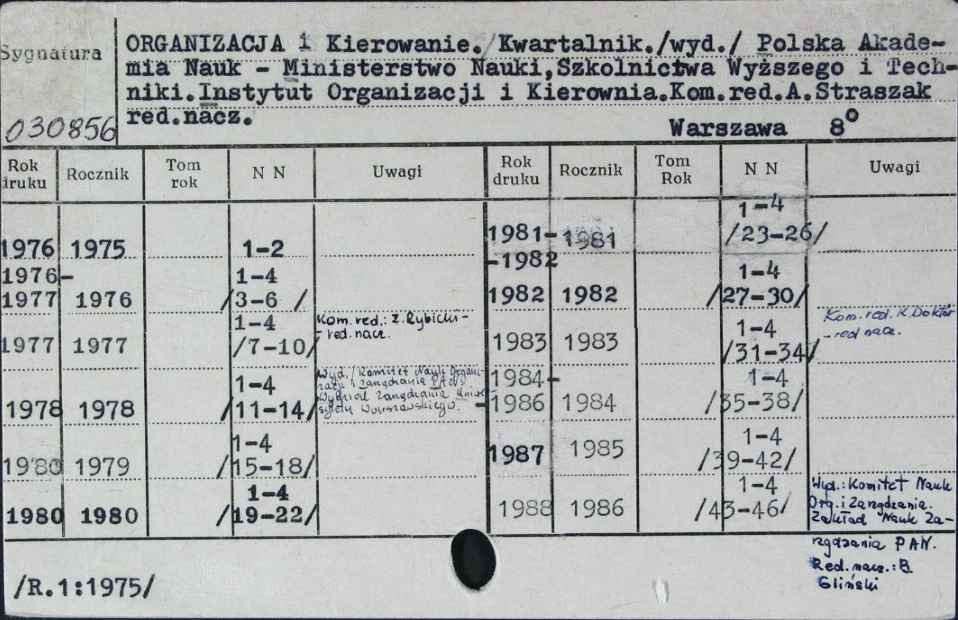 Sygnatura
030856
ORGANIZACJA i Kierowanie./Kwartalnik./wyd./ Polska Akade-
mia Nauk - Ministerstwo Nauki,Szkolnictwa Wyższego i Tech-
niki.Instytut Organizacji i Kierownia.Kom.red.A.Straszak
red.nacz.
Warszawa 8°
Rok druku Rocznik Tom rok N N Uwagi Rok druku Rocznik Tom Rok N N Uwagi
1976 1975 1-2
1976-1977 1976 1-4 /3-6 /
1977 1977 1-4 /7-10/ Kom. red.: Z. Rybicki-
- red. nacz.
1978 1978 1-4 /11-14/ Wyd./Komitet Nauk Organi-
zacji i Zarządzania PAN
Wydział Zarządzania Uniwer-
sytetu Warszawskiego.
1980 1979 1-4 /15-18/
1980 1980 1-4 /19-22/
1981-
-1982 1981 1-4 /23-26/
1982 1982 1-4 /27-30/
1983 1983 1-4 /31-34/ Kom. red. K. Doktór
- red nacz.
1984-
1986 1984 1-4 /35-38/
1987 1985 1-4 /39-42/
1988 1986 1-4 /43-46/ Wyd.: Komitet Nauk
Org. i Zarządzania.
Zakład Nauk Za-
rządzania PAN.
Red. nacz.: B.
Gliński
/R.1:1975/